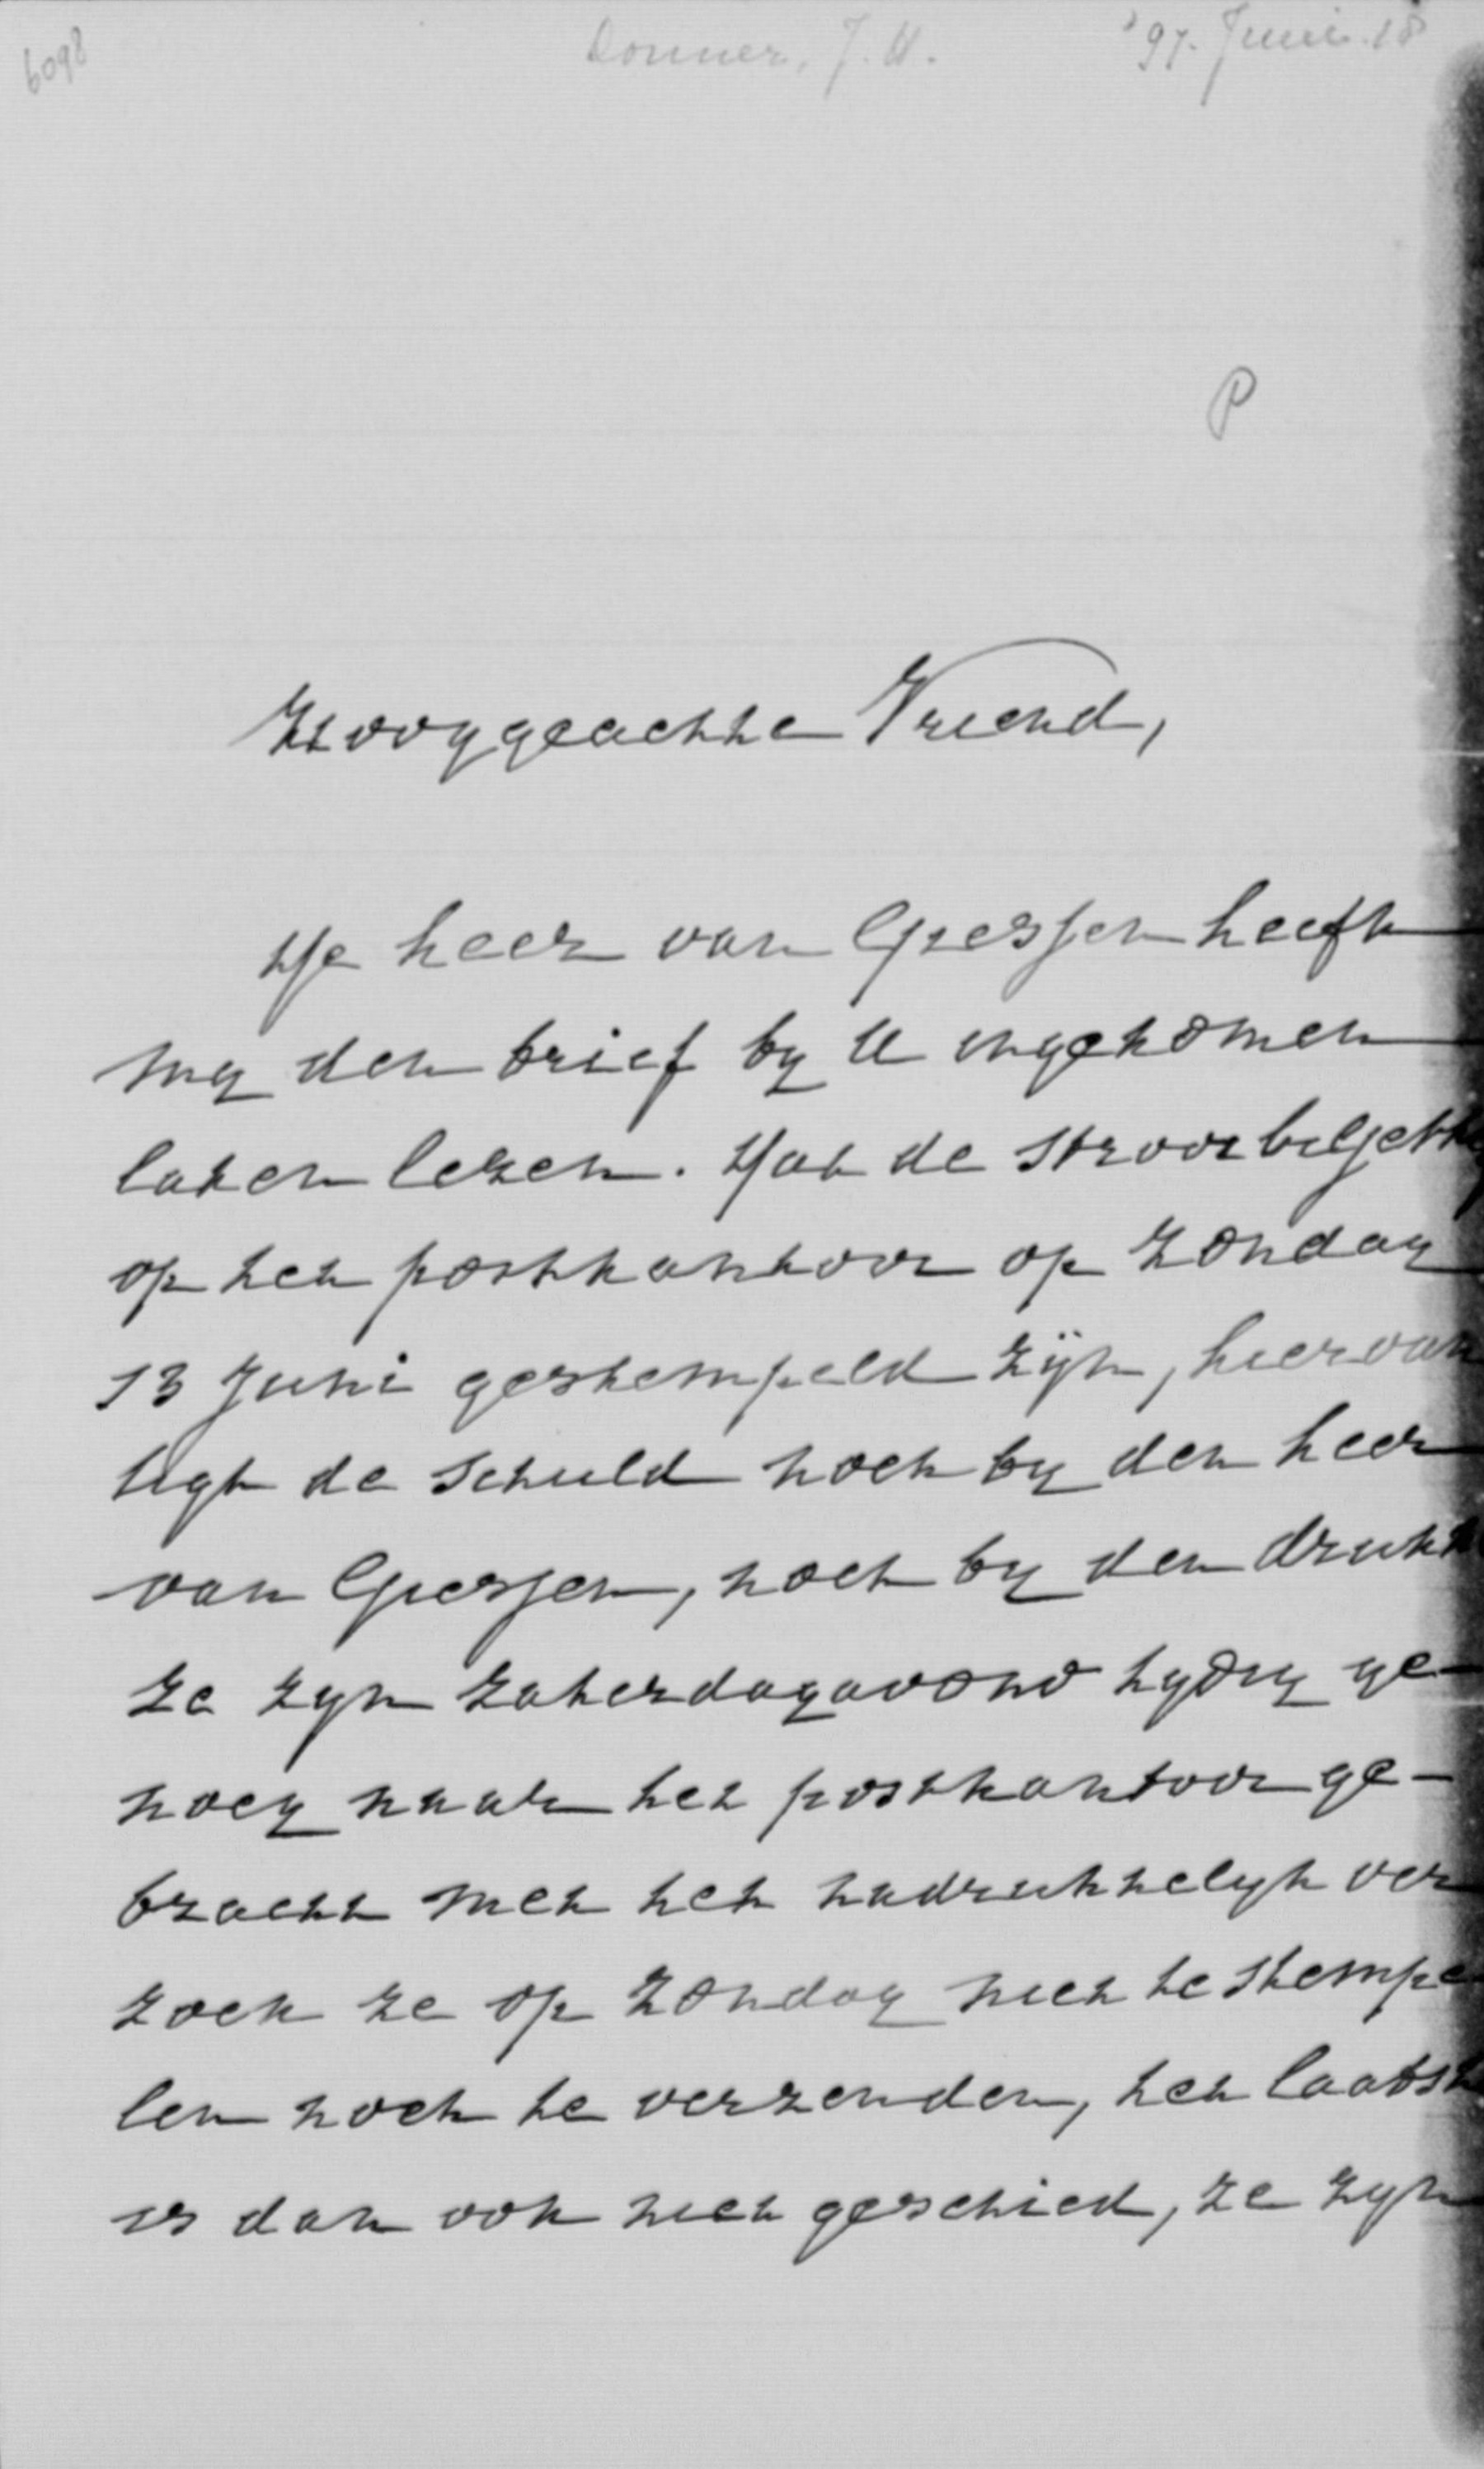 6098
Donner, J.H. '97. Juni. 18
P
Hooggeachte Vriend,
De heer van Giessen heeft
my den brief by U ingekomen
laten lezen. Dat de strooibiljett
op het postkantoor op Zondag
13 Juni gestempeld zÿn, hiervan
ligt de schuld noch by den heer
van Giessen, noch by den drukk
Ze zyn Zaterdagavond tydig ge-
noeg naar het postkantoor ge-
bracht met het nadrukkelyk ver
zoek ze op Zondag niet te stempe
len noch te verzenden, het laatst
is dan ook niet geschied, ze zyn